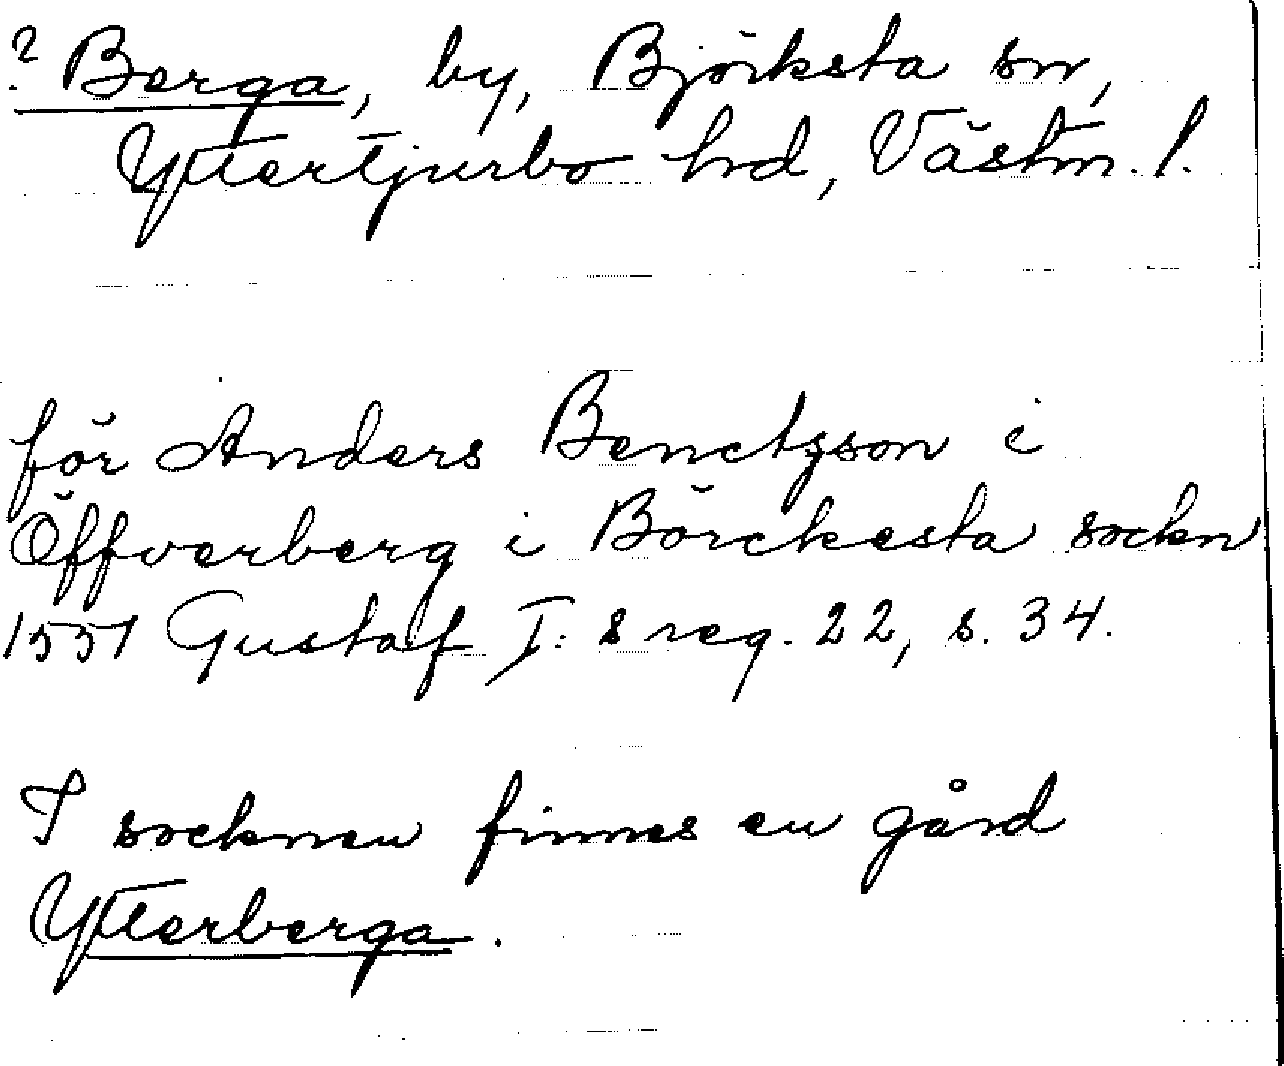 ? Berga, by, Björksta sn,
Yttertjurbo hd, Västm. l.
för Anders Benctzson i
Öffverberg i Börckesta sockn
1551 Gustaf I:s reg. 22, s. 34.
I socknen finnes en gård
Ytterberga.